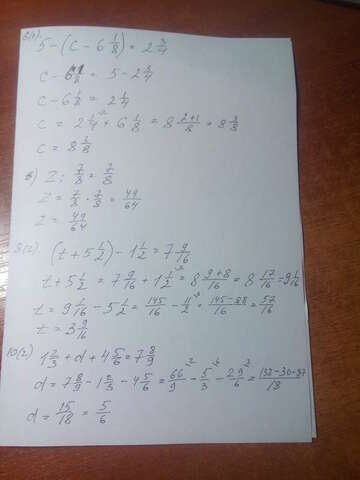 5 - (c - 6 1/8) = 2 3/4
c - 6 1/8 = 5 - 2 3/4
c - 6 1/8 = 2 1/4
c = 2 1/4 + 6 1/8 = 8 (2+1)/8 = 8 3/8
c = 8 3/8
z : 7/8 = 7/8
z = 7/8 · 7/8 = 49/64
z = 49/64
8(2). (t + 5 1/2) - 1 1/2 = 7 9/16
t + 5 1/2 = 7 9/16 + 1 1/2 = 8 (9+8)/16 = 8 17/16 = 9 1/16
t = 9 1/16 - 5 1/2 = 145/16 - 11/2 = (145-88)/16 = 57/16
t = 3 9/16
10(2) 1 2/3 + d + 4 5/6 = 7 8/9
d = 7 8/9 - 1 2/3 - 4 5/6 = 66/9 - 5/3 - 29/6 = (132-30-87)/18
d = 15/18 = 5/6